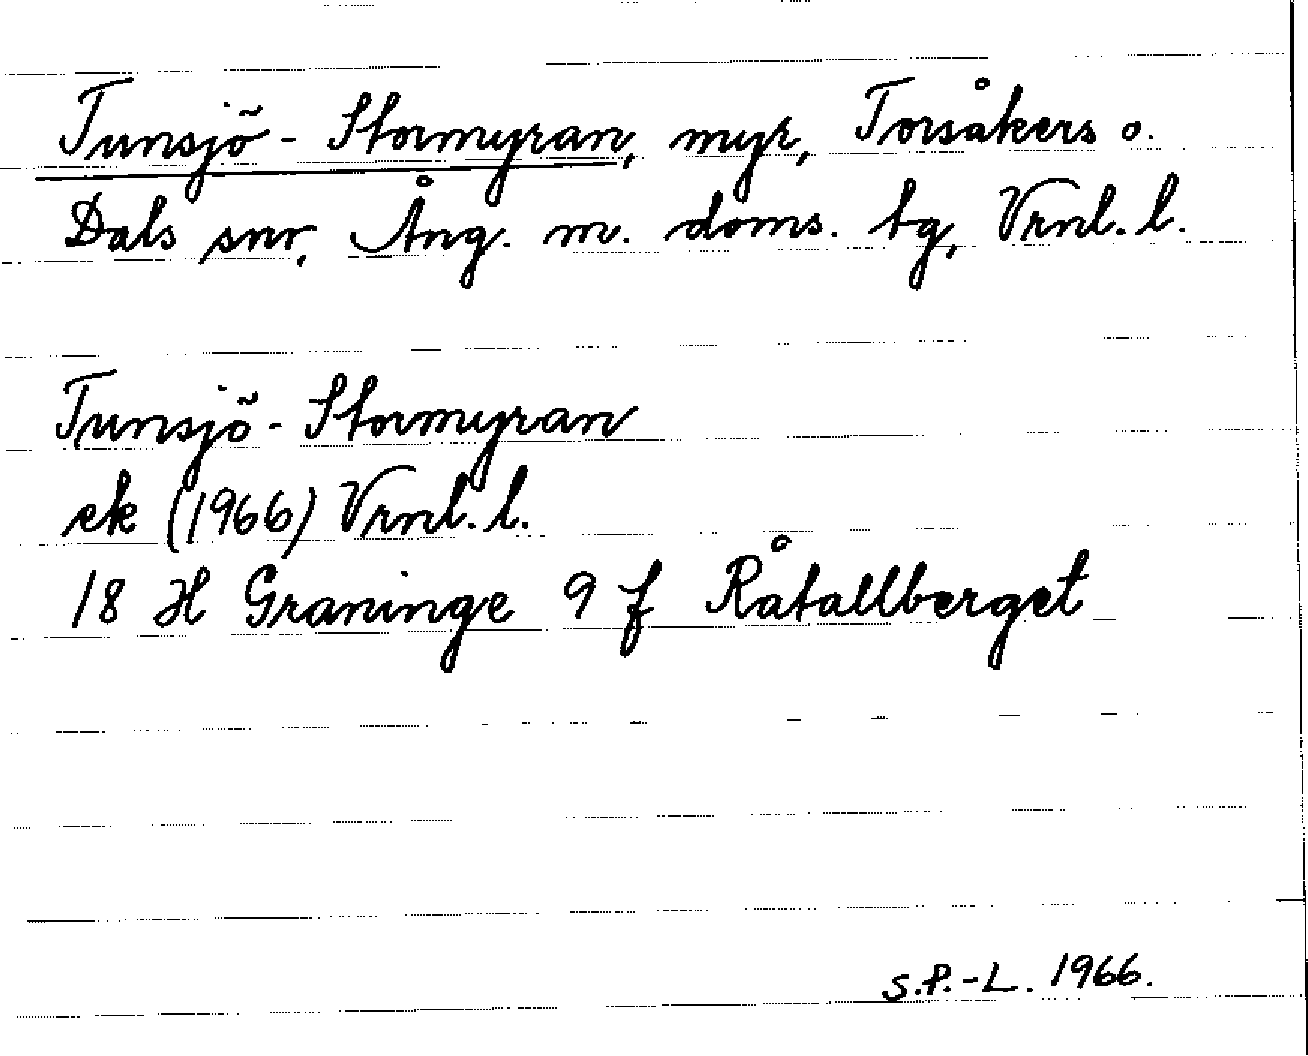 Tunsjö-Stormyran, myr, Torsåkers o.
Dals snr, Ång. m. doms. tg, Vrnl. l.
Tunsjö-Stormyran
ek (1966) Vrnl. l.
18 H Graninge 9 f Råtallberget
S.P.-L. 1966.